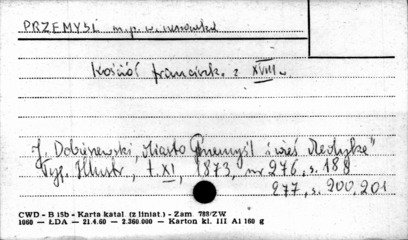 PRZEMYŚL m.p. w.
Kościół francisk. z XVIII w.
J. Dobrzewski, Miasto Przemyśl i wieś Medyka"
Tyg. Illustr., t. XI, 1873, nr 276, s. 188
277, s. 200, 201
CWD - B 15b - Karta katal. (z liniat.) - Zam. 788/ZW
1068 — ŁDA — 21.4.60 - 2.360.000 — Karton kl. III A1 160 g